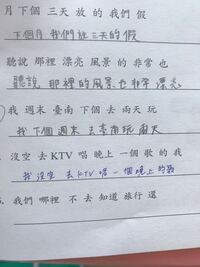 月 下個 三天 放 的 我們 假
下個月我們放三天的假
聽說 那裡 漂亮 風景 的 非常 也
聽說 那裡的風景也非常漂亮
我 週末 臺南 下個 去 兩天 玩
我下個週末去臺南玩兩天
. 沒空 去 KTV 唱 晚上 一個 歌 的 我
我沒空去KTV唱一個晚上的歌
. 我們 哪裡 不 去 知道 旅行 還